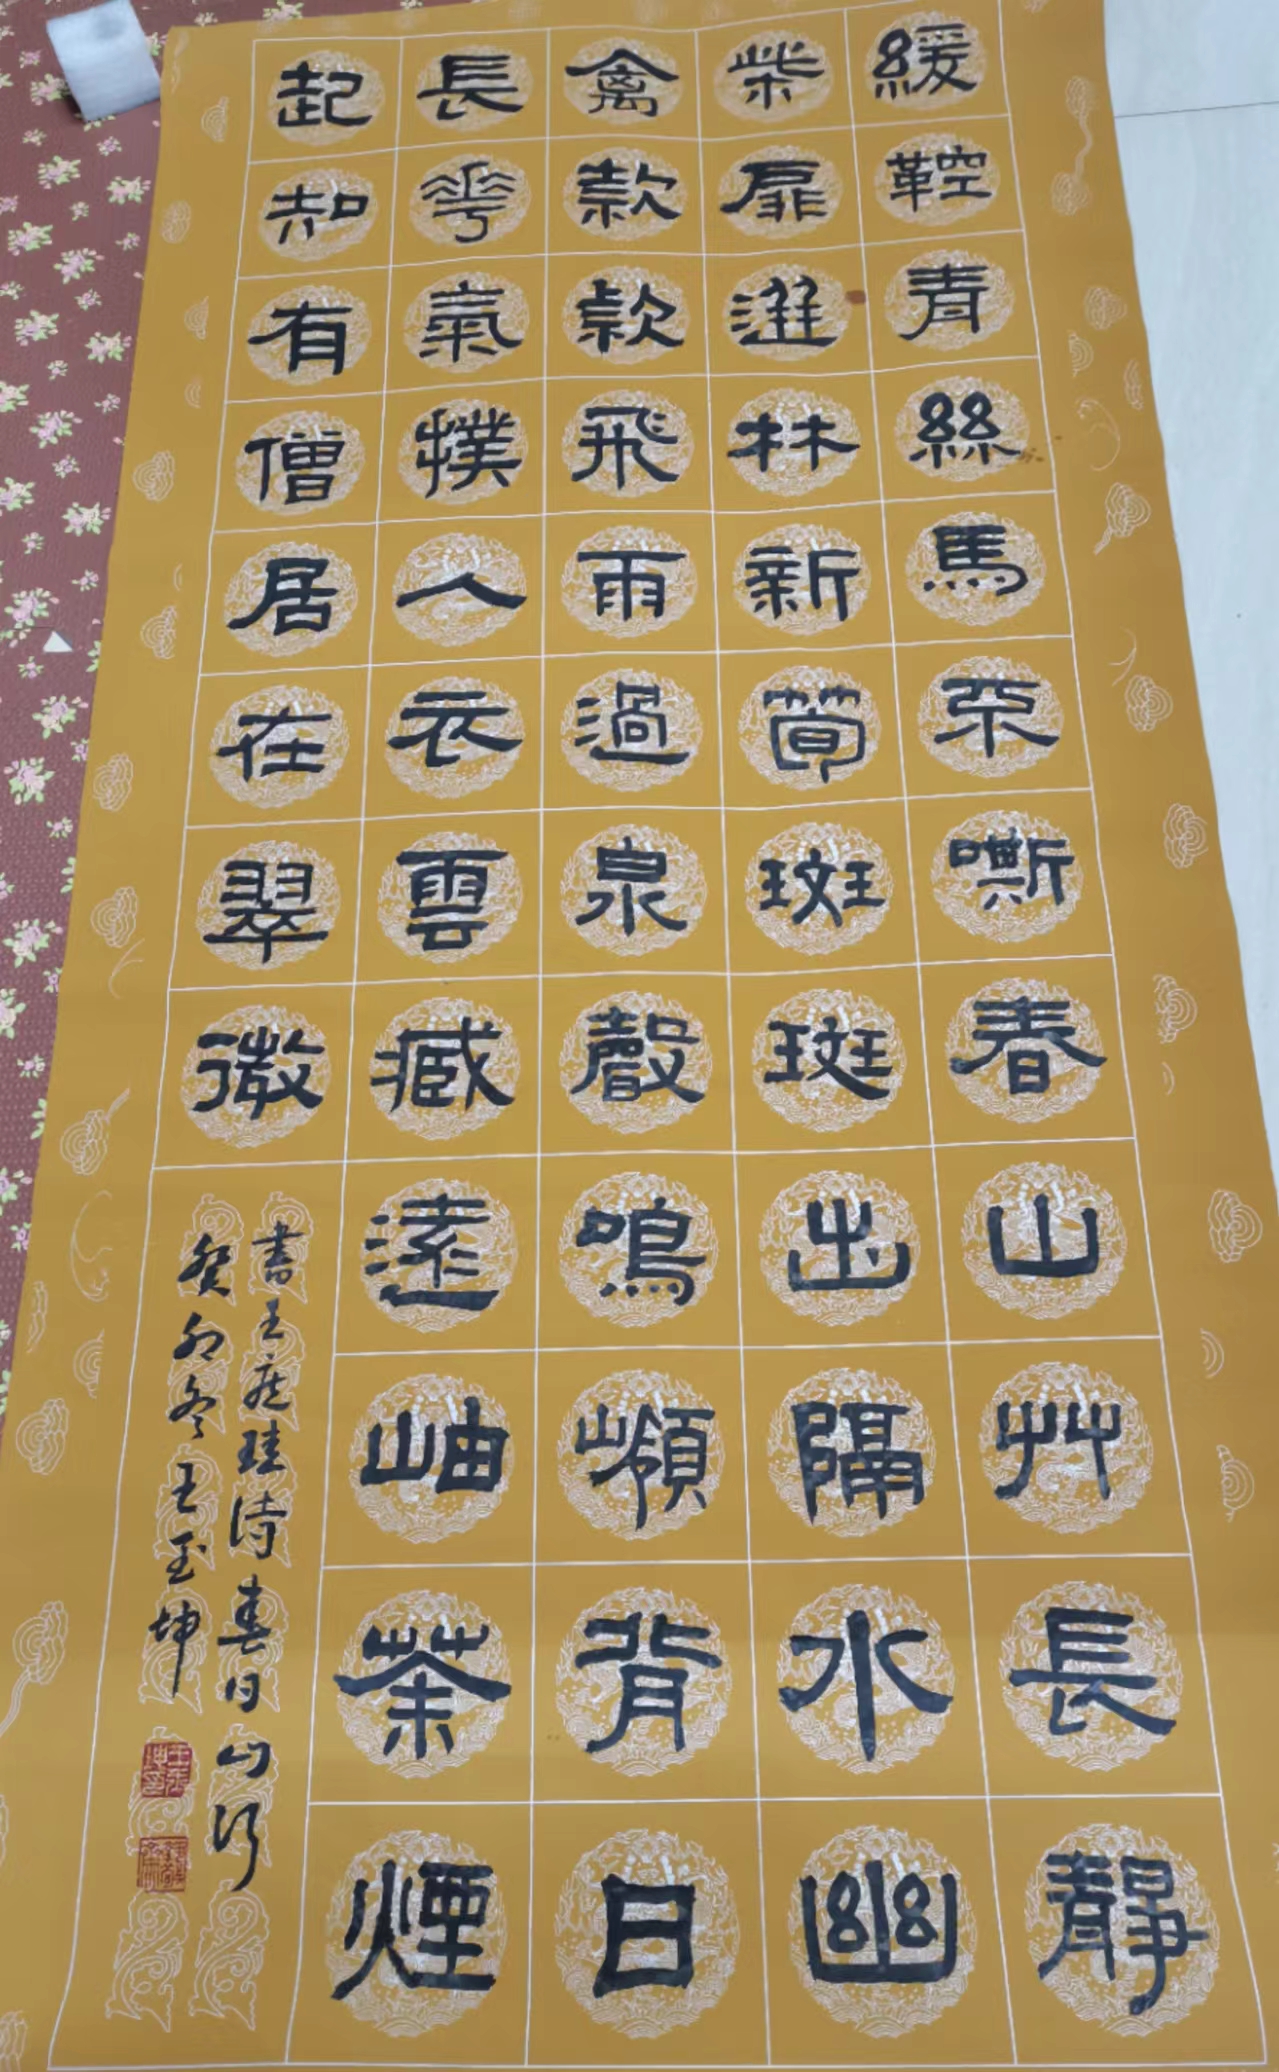 緩鞚青絲馬不嘶春山艸長靜
柴扉進林新筍斑斑出隔水幽
禽款款飛雨過泉聲鳴嶺背日
長華氣撲人衣雲臧遠岫茶煙
起知有僧居在翠微
書王庭珪詩春日山行
癸卯冬王玉坤